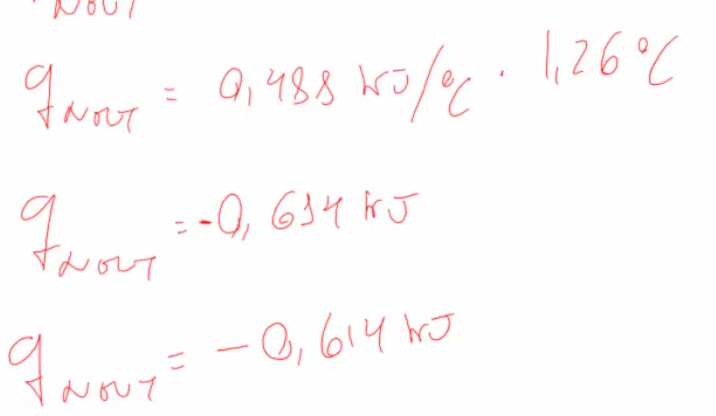 NOUT
q NOUT = 0,488 kJ/°C · 1,26°C
q NOUT = -0,614 kJ
q NOUT = -0,614 kJ